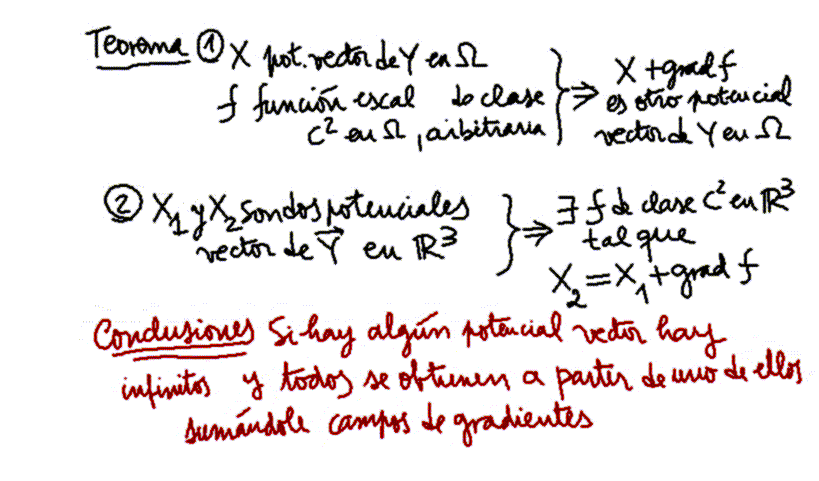 Teorema ① X pot. vector de Y en Ω
f función escal de clase
C² en Ω, arbitraria
} ⇒ X + grad f
es otro potencial
vector de Y en Ω
② X₁ y X₂ son dos potenciales
vector de Y⃗ en ℝ³
} ⇒ ∃ f de clase C² en ℝ³
tal que
X₂ = X₁ + grad f
Conclusiones Si hay algún potencial vector hay
infinitos y todos se obtienen a partir de uno de ellos
sumándole campos de gradientes